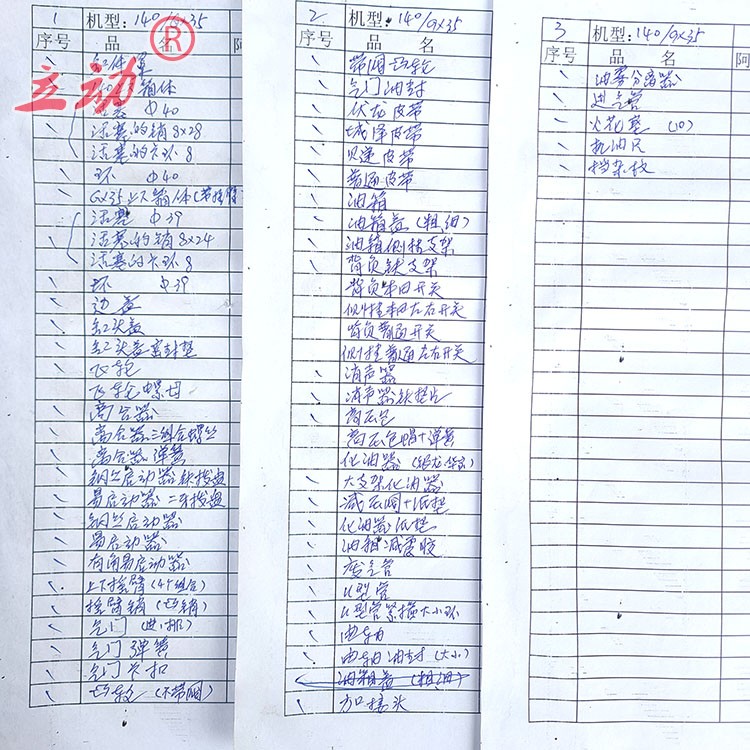 1 机型:140/GX35
序号 品 名
缸体罩
箱体
活塞 Φ40
活塞的销8×28
活塞的卡环8
环 Φ40
GX35上下箱体(带摇臂
活塞 Φ39
活塞的销8×24
活塞的卡环8
环 Φ39
边盖
缸头盖
缸头盖密封垫
飞轮
飞轮螺母
离合器
离合器二组合螺丝
离合器弹簧
钢丝启动器铁拨盘
易启动器二手拨盘
钢丝启动器
易启动器
有闹易启动器
上下摇臂(4个组合)
摇臂销(齿销)
气门(进、排)
气门弹簧
气门卡扣
齿轮(不带阀)
立动®
2 机型:140/GX35
序号 品 名
带阀齿轮
气门油封
伏龙皮带
城泽皮带
贝递皮带
普通皮带
油箱
油箱盖(粗、细)
油箱侧挂支架
背负铁支架
背负本田开关
侧挂本田左右开关
背负普通开关
侧挂普通左右开关
消声器
消声器铁垫片
高压包
高压包帽+弹簧
化油器(银龙、华玄)
大支架化油器
减压阀+纸垫
化油器纸垫
油箱减震胶
废气管
U型管
U型管紧接大小环
曲轴
曲轴油封(大小)
油箱盖(粗、细)
方口接头
3 机型:140/GX35
序号 品 名 阿
油雾分离器
进气管
火花塞(10)
机油尺
挡杂枝